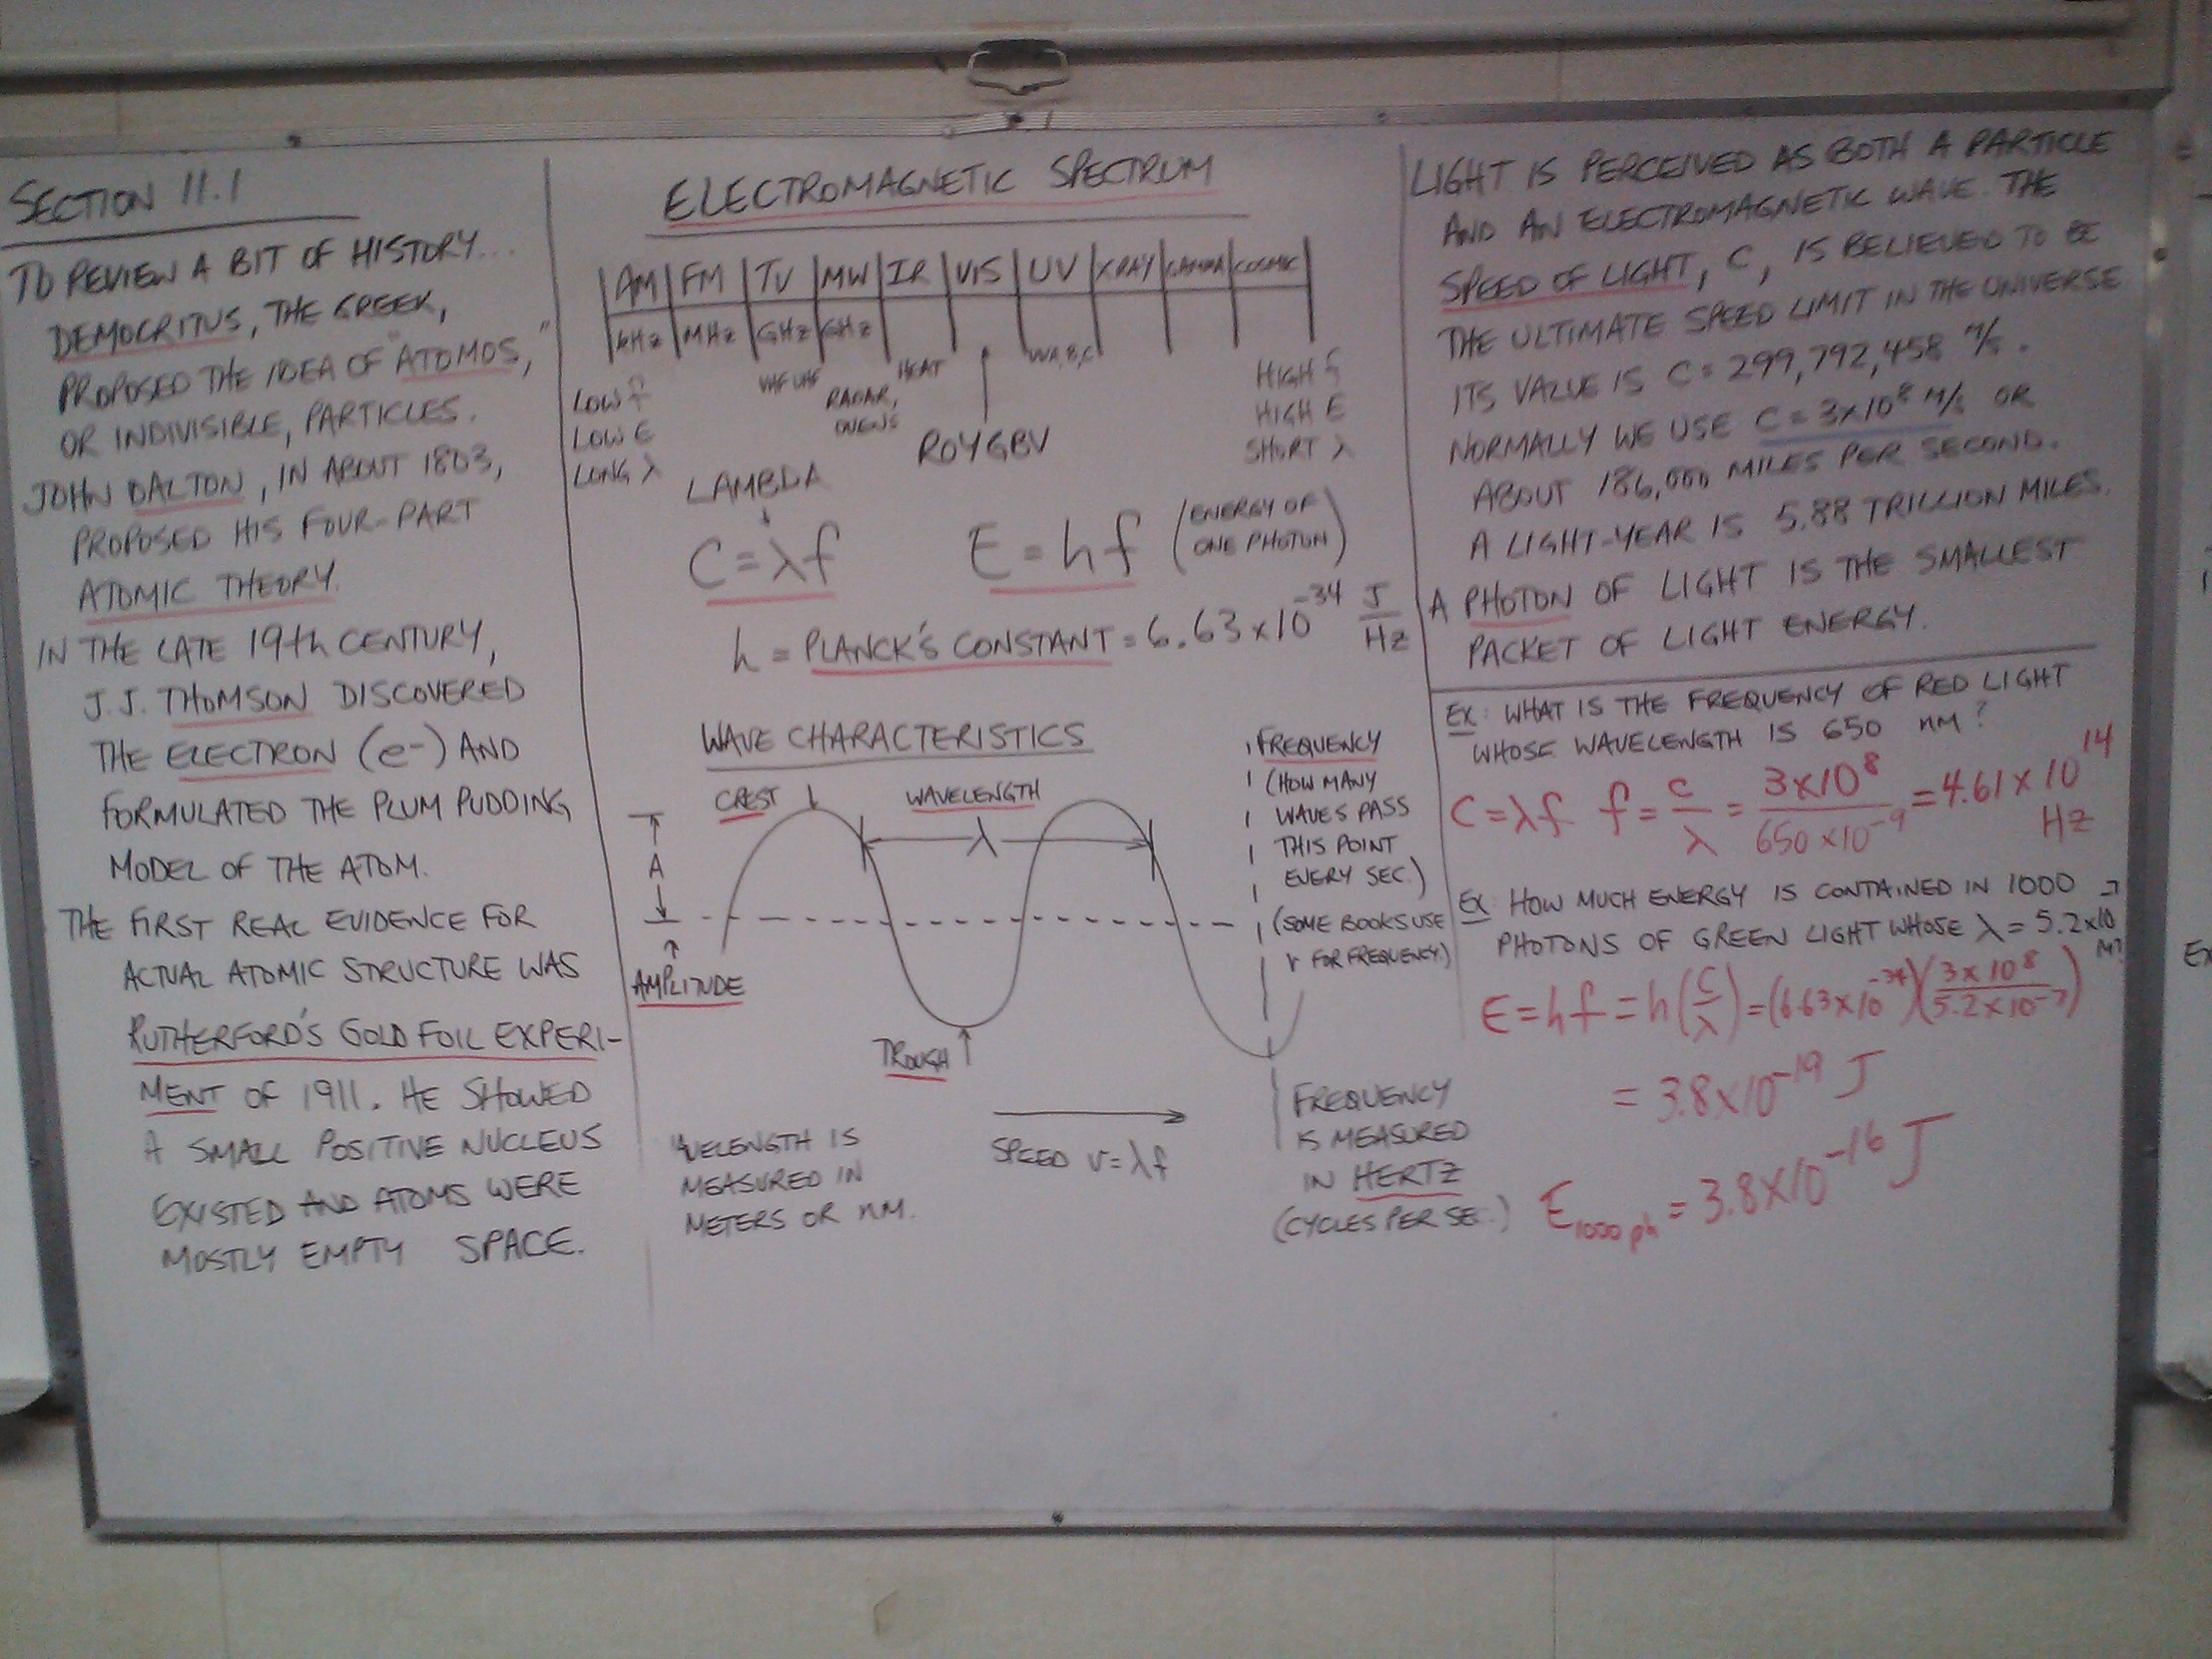 SECTION 11.1
TO REVIEW A BIT OF HISTORY...
DEMOCRITUS, THE GREEK,
PROPOSED THE IDEA OF "ATOMOS,"
OR INDIVISIBLE, PARTICLES.
JOHN DALTON, IN ABOUT 1803,
PROPOSED HIS FOUR-PART
ATOMIC THEORY.
IN THE LATE 19th CENTURY,
J.J. THOMSON DISCOVERED
THE ELECTRON (e-) AND
FORMULATED THE PLUM PUDDING
MODEL OF THE ATOM.
THE FIRST REAL EVIDENCE FOR
ACTUAL ATOMIC STRUCTURE WAS
RUTHERFORD'S GOLD FOIL EXPERI-
MENT OF 1911. HE SHOWED
A SMALL POSITIVE NUCLEUS
EXISTED AND ATOMS WERE
MOSTLY EMPTY SPACE.
ELECTROMAGNETIC SPECTRUM
AM FM TV MW IR VIS UV XRAY GAMMA COSMIC
kHz MHz GHz GHz
VHF UHF HEAT UVA,B,C
RADAR,
OVENS
ROYGBV
LOW f
LOW E
LONG λ
HIGH f
HIGH E
SHORT λ
LAMBDA
C = λf E = hf (ENERGY OF
ONE PHOTON)
h = PLANCK'S CONSTANT = 6.63 x 10⁻³⁴ J/Hz
WAVE CHARACTERISTICS
CREST WAVELENGTH
λ
A
AMPLITUDE
TROUGH
SPEED v = λf
WAVELENGTH IS
MEASURED IN
METERS OR nM.
FREQUENCY
(HOW MANY
WAVES PASS
THIS POINT
EVERY SEC.)
(SOME BOOKS USE
ν FOR FREQUENCY.)
FREQUENCY
IS MEASURED
IN HERTZ
(CYCLES PER SEC.)
LIGHT IS PERCEIVED AS BOTH A PARTICLE
AND AN ELECTROMAGNETIC WAVE. THE
SPEED OF LIGHT, C, IS BELIEVED TO BE
THE ULTIMATE SPEED LIMIT IN THE UNIVERSE
ITS VALUE IS C = 299,792,458 M/S.
NORMALLY WE USE C = 3x10⁸ M/S OR
ABOUT 186,000 MILES PER SECOND.
A LIGHT-YEAR IS 5.88 TRILLION MILES.
A PHOTON OF LIGHT IS THE SMALLEST
PACKET OF LIGHT ENERGY.
EX: WHAT IS THE FREQUENCY OF RED LIGHT
WHOSE WAVELENGTH IS 650 nM?
C = λf f = c/λ = 3x10⁸/650x10⁻⁹ = 4.61 x 10¹⁴
Hz
EX: HOW MUCH ENERGY IS CONTAINED IN 1000
PHOTONS OF GREEN LIGHT WHOSE λ = 5.2x10⁻⁷
M?
E = hf = h(c/λ) = (6.63x10⁻³⁴)(3x10⁸/5.2x10⁻⁷)
= 3.8x10⁻¹⁹ J
E1000 ph = 3.8x10⁻¹⁶ J
Ex